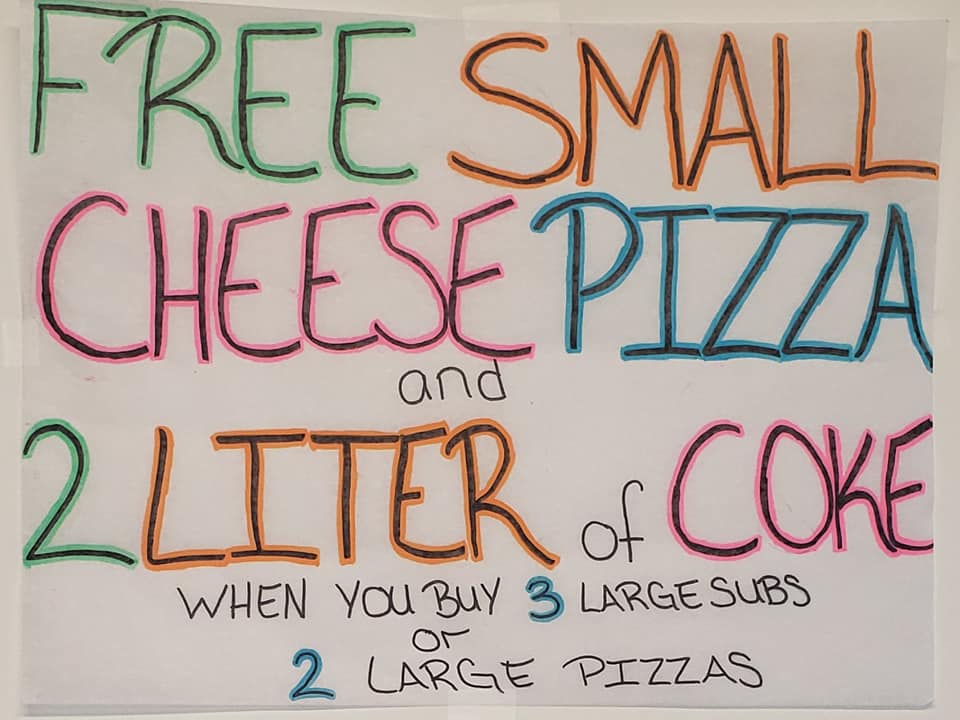 FREE SMALL
CHEESE PIZZA
and
2 LITER of COKE
WHEN YOU BUY 3 LARGE SUBS
or
2 LARGE PIZZAS